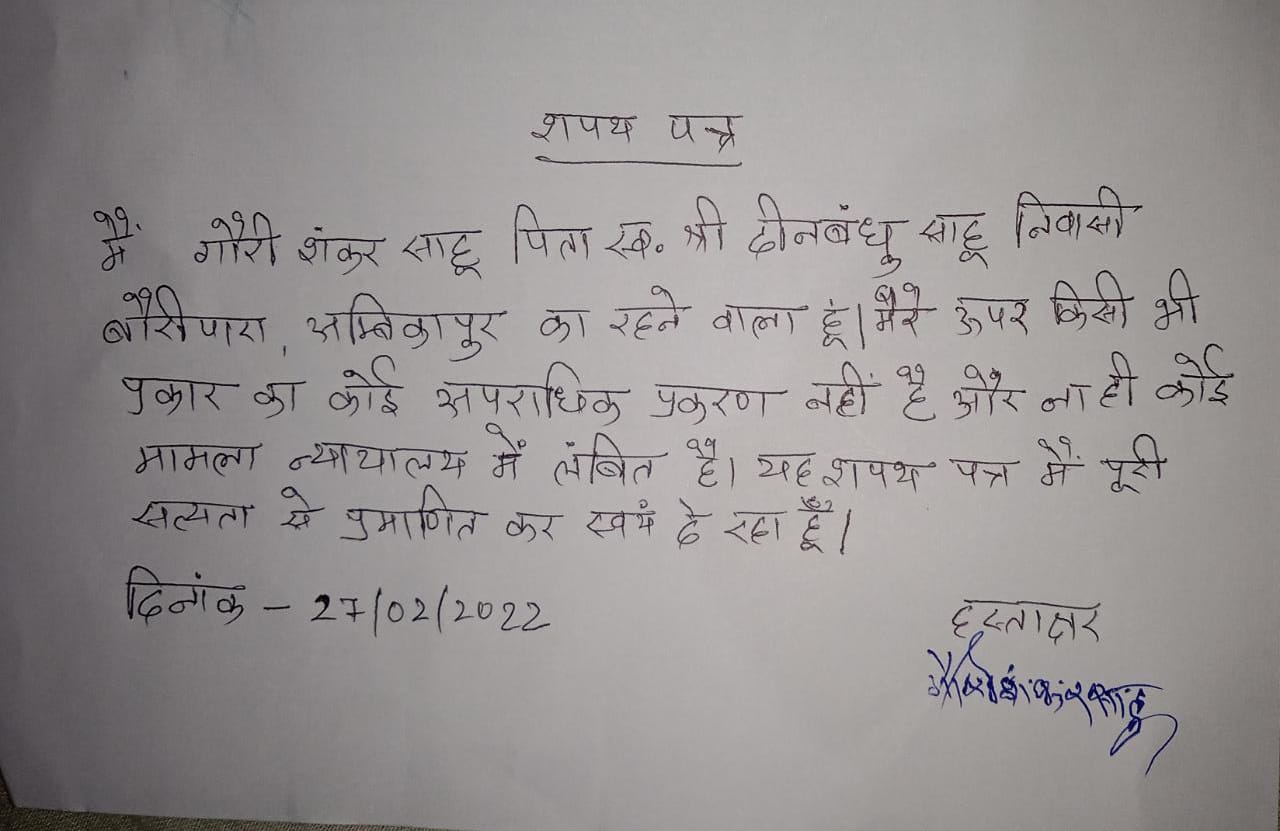 शपथ पत्र
मैं गौरी शंकर साहू पिता स्व. श्री दीनबंधु साहू निवासी
बौरीपारा, अम्बिकापुर का रहने वाला हूं। मेरे ऊपर किसी भी
प्रकार का कोई अपराधिक प्रकरण नहीं है और ना ही कोई
मामला न्यायालय में लंबित है। यह शपथ पत्र मैं पूरी
सत्यता से प्रमाणित कर स्वयं दे रहा हूँ।
दिनांक - 27/02/2022
हस्ताक्षर
गौरी शंकर साहू